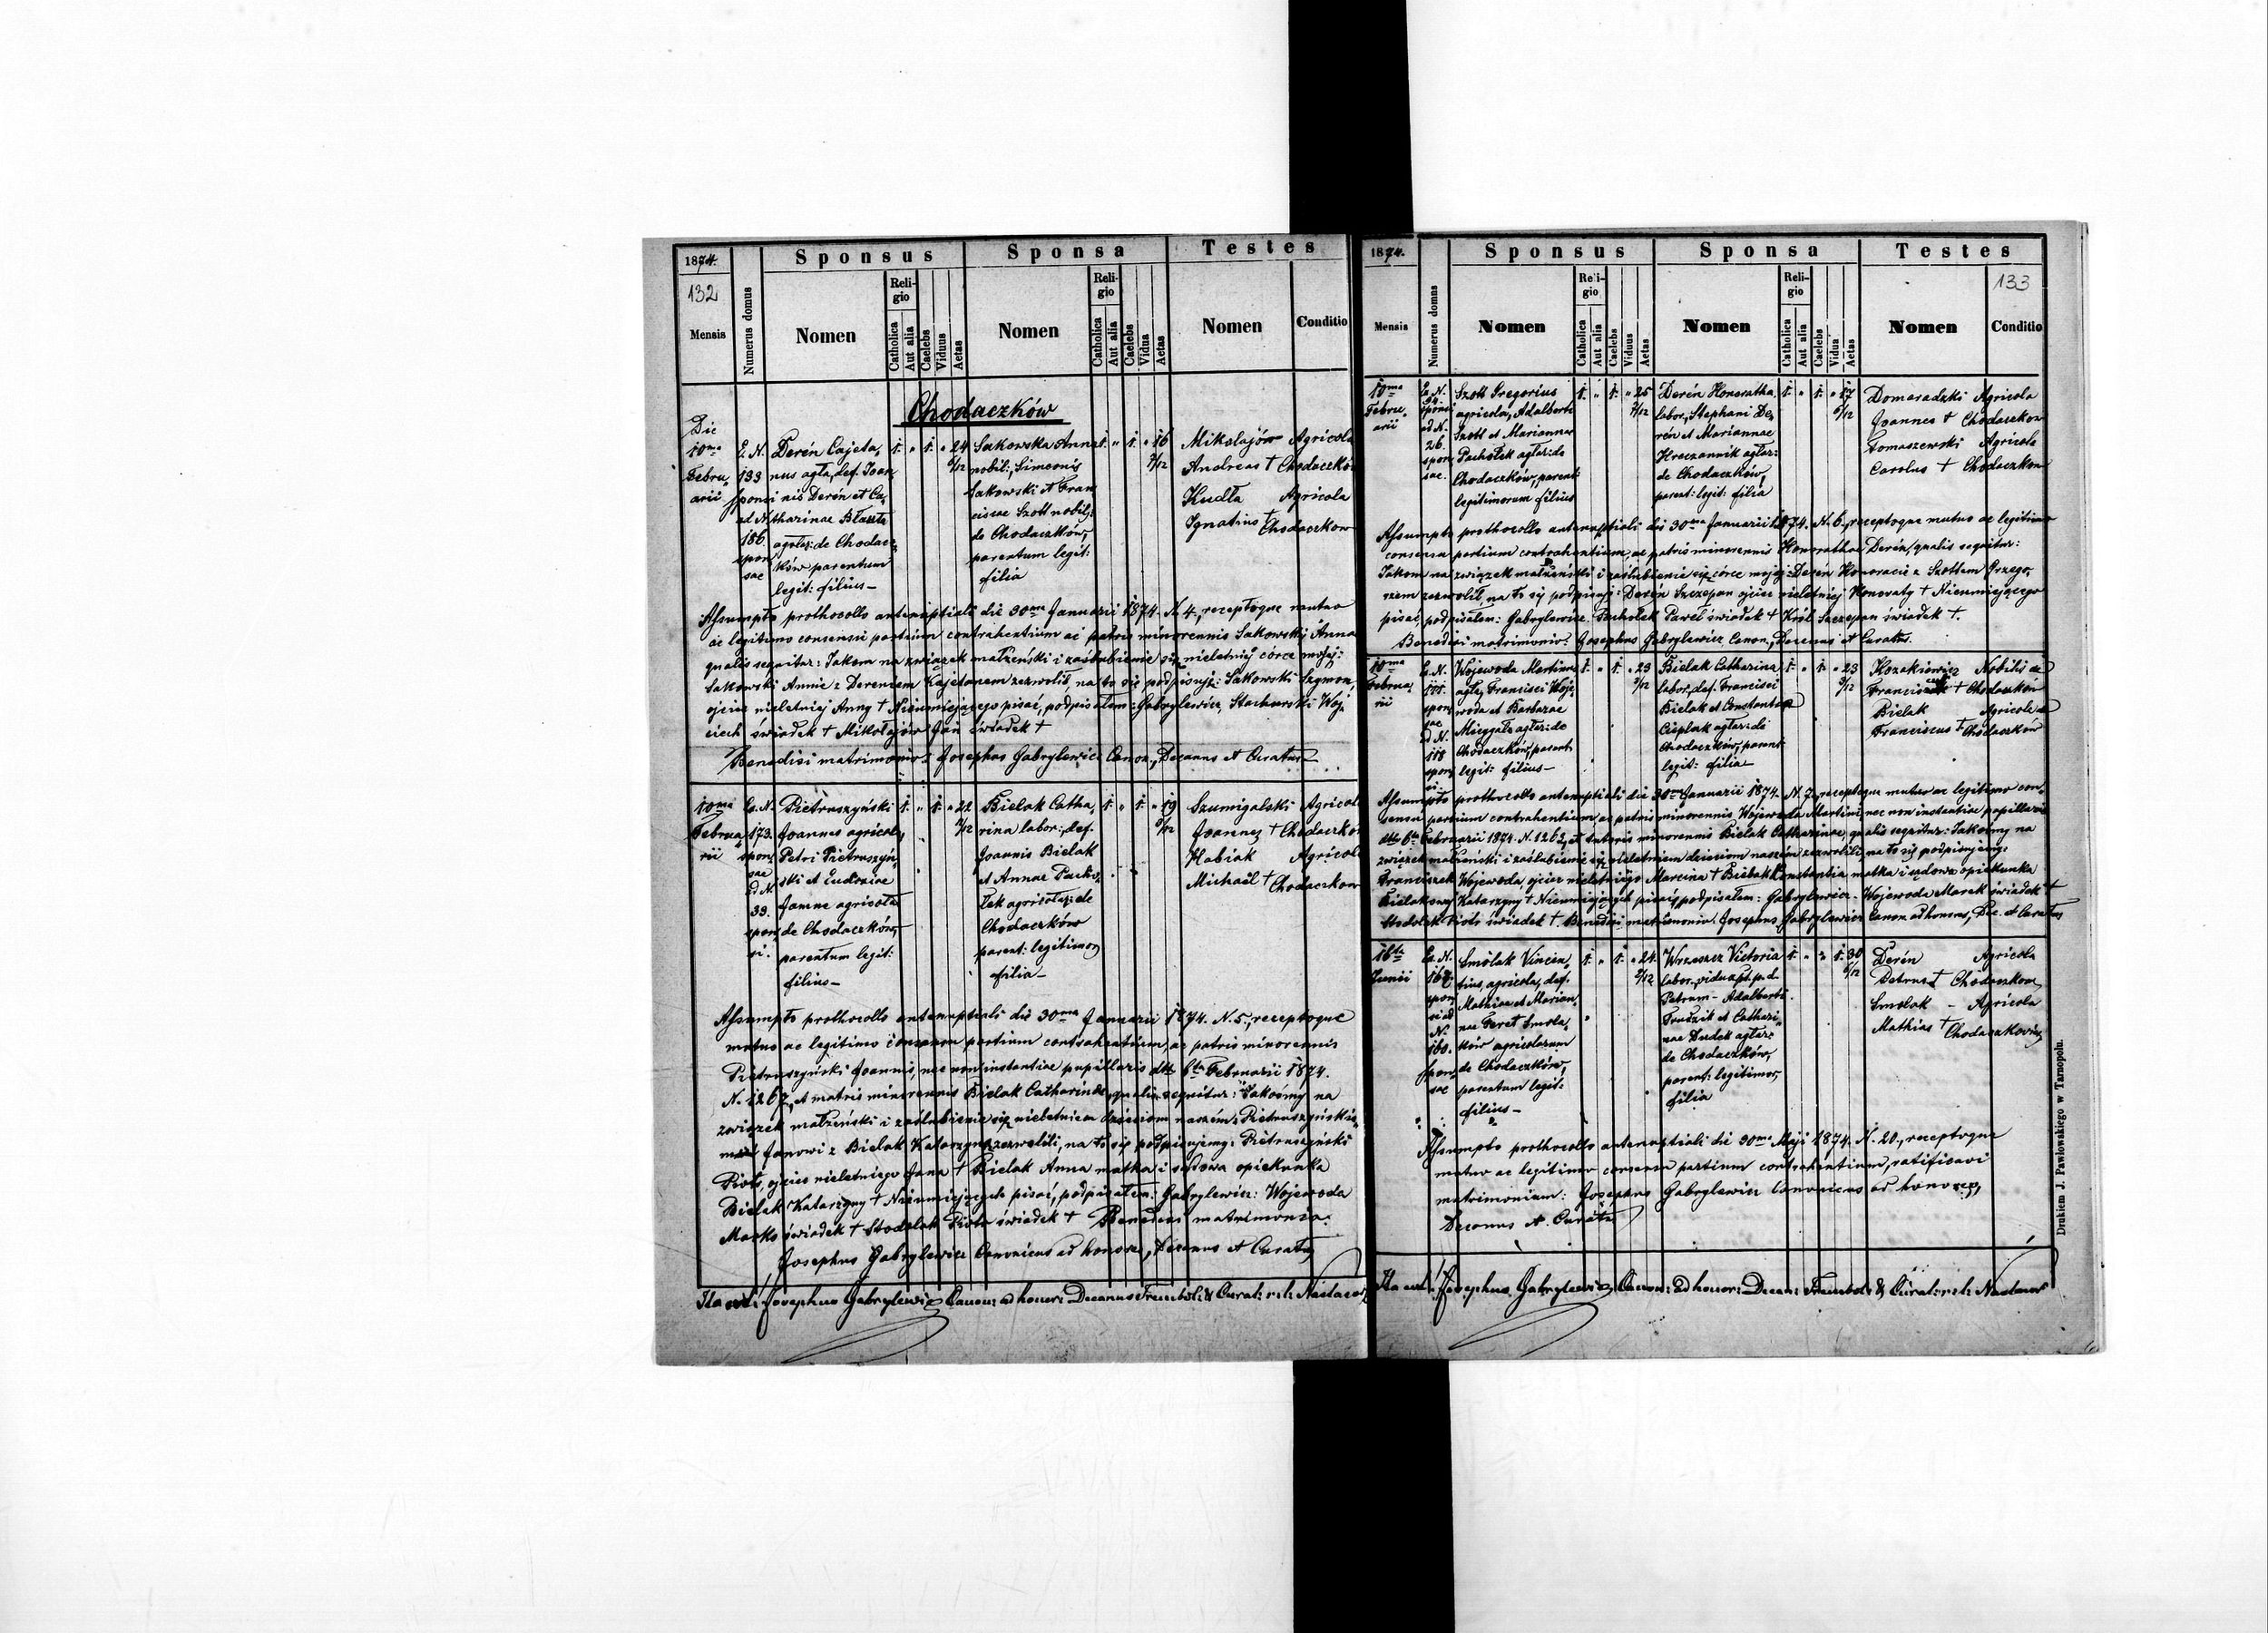 1874.
132
Mensis
Numerus domus
Sponsus
Nomen
Religio
Catholica
Aut alia
Caelebs
Viduus
Aetas
Sponsa
Nomen
Religio
Catholica
Aut alia
Caelebs
Vidua
Aetas
Testes
Nomen
Conditio
Chodaczków
Die
10ma
Febru
arii
E. N.
133
sponsi
ad N
186.
spon
sae
Derén Cajeta,
nus agla, def. Joan
nis Derén et Ca,
tharinae
de Chodacz,
ków parentum
legit: filius
1. " 1. " 24
Sakowska Anna
nobil:, Simeonis
Sakowski et Fran
ciscae Szott nobil:
de Chodaczków,
parentum legit:
filia
1. " 1. " 16
Mikołajów Agricola
Andreas † Chodaczków
Kudła Agricola
Ignatius † Chodaczkow
Assumpto prothocollo antenuptiali die 30ma Januarii 1874. N. 4, receptoque mutuo
ac legitimo consensu partium contrahentium ac patris minorennis Sakowski Anna
qualis sequitur: Jakom na związek małżeński i zaślubienie się nieletniej córce mojej:
Sakowski Annie z Dereniem Kajetanem zezwolił, na to się podpisuję: Sakowski Szymon,
ojciec nieletniej Anny † Nieumiejącego pisać, podpisałem: Gabrylewicz, Stachurski Woj,
ciech świadek † Mikołajów Jan świadek †
Benedixi matrimonio: Josephus Gabrylewicz Canon., Decanus et Curatus
10ma
Februa
rii
Es. N.
173.
spon,
sae
ad N
39.
spon,
si.
Pietruszyński
Joannes agricola,
Petri Pietruszyń
ski et Eudoxiae
Jamne agricolar
de Chodaczków,
parentum legit:
filius
1. " 1. " 22
Bielak Catha,
rina labor:, def.
Joannis Bielak
et Annae Pacho,
łek agricolar: de
Chodaczków
parent: legitimor
filia
1. " 1. " 19
Szumigalski Agricola
Joannes † Chodaczków
Habiak Agricola
Michaël † Chodaczkow
Assumpto prothocollo antenuptiali die 30ma Januarii 1874. N. 5., receptoque
mutuo ac legitimo consensu partium contrahentium, ac patris minorennis
Pietruszyński Joannis, nec non instantiae pupillaris dtto 6ta Februarii 1874.
N. 1262, et matris minorennis Bielak Catharinae, qualis sequitur: Jakośmy na
związek małżeński i zaślubienie się nieletniem dzieciom naszém: Pietruszyński,
Janowi z Bielak Katarzyną zezwolili, na to się podpisujemy: Pietruszyński
Piotr, ojciec nieletniego Jana † Bielak Anna matka i sądowa opiekunka
Bielak Katarzyny † Nieumiejących pisać, podpisałem: Gabrylewicz: Wojewoda
Marko świadek † Stodolak Piotr świadek † Benedixi matrimonio:
Josephus Gabrylewicz Canonicus ad honores, Decanus et Curatus
Ita est: Josephus Gabrylewicz Canon: ad honor: Decanus Trembol: & Curat: r: l:
1874.
Mensis
Numerus domus
Sponsus
Nomen
Religio
Catholica
Aut alia
Caelebs
Viduus
Aetas
Sponsa
Nomen
Religio
Catholica
Aut alia
Caelebs
Vidua
Aetas
Testes
133
Nomen
Conditio
10ma
Febru,
arii
Ex N.
sponsi
ad N.
26
spon
sae.
Szott Gregorius
agricola, Adalberti
Szott et Mariannae
Pachołek aglar: de
Chodaczków, parent:
legitimorum filius
1. " 1. " 25 2/12
Derén Honoratha,
labor:, Stephani De,
rén et Mariannae
aglar:
de Chodaczków,
parent: legit: filia
1. " 1. " 17
Domaradzki Agricola
Joannes † Chodaczkow
Tomaszewski Agricola
Carolus † Chodaczkow
Assumpto prothocollo antenuptiali die 30ma Januarii 1874. N. 6., receptoque mutuo ac legitimo
consensu partium contrahentium, ac patris minorennis Honorathae Derén, qualis sequitur:
Jakom na związek małżeński i zaślubienie się córce mojej: Derén Honoracie z Szottem Grzego,
rzem zezwolił na to się podpisuję: Derén Szczepan ojciec nieletniej Honoraty † Nieumiejącego
pisać, podpisałem: Gabrylewicz. Pachołek Paweł świadek † Król Szczepan świadek †.
Benedixi matrimonio: Josephus Gabrylewicz Canon., Decanus et Curatus.
10ma
Februa
rii
Es. N.
111.
spon,
sae
ad N.
118
spon,
si.
Wojewoda Martinus
agla, Francisci Woje,
woda et Barbarae
aglar: de
Chodaczków, parent
legit: filius
1. " 1. " 23
Bielak Catharina
labor., def. Francisci
Bielak et Constantiae
Cieplak aglar: de
Chodaczków, parent
legit: filia
1. " 1. " 23
Nobilis de
† Chodaczków
Bielak Agricola
Franciscus † Chodaczków
Assumpto prothocollo antenuptiali die 30ma Januarii 1874. N. 7., receptoque mutuo ac legitimo con,
sensu partium contrahentium ac patris minorennis Wojewoda Martini, nec non instantiae pupillaris
dtto 6ta Februarii 1874. N. 1263, et tutoris minorennis Bielak Catharinae, qualis sequitur: Jakośmy na
związek małżeński i zaślubienie się nieletniem dzieciom naszém zezwolili na to się podpisujemy:
Franciszek Wojewoda, ojciec nieletniego Marcina † Bielak Konstantia matka i sądowa opiekunka
Katarzyny † Nieumiejących pisać, podpisałem: Gabrylewicz. Wojewoda Marek świadek †
Stodolak Piotr świadek †. Benedixi matrimonio. Josephus Gabrylewicz Canon. ad honores, Dec. et Curatus
16ta
Junii
Es. N.
spon
si ad
N.
160.
spon,
sae
Smolak Vincen,
tius, agricola, def.
Mathiae et Marian,
nae Geret Smola,
ków agricolarum
de Chodaczków,
parentum legit:
filius
1. " 1. " 24. 2/12
Wrzaszcz Victoria
labor., vidua p. d.
Petrum Adalberti
et Cathari,
nae Dudek aglar:
de Chodaczków,
parent: legitimor,
filia
1. " " 1. 30
Derén Agricola
Petrus † Chodaczkow
Smolak - Agricola
Mathias † Chodaczkow
Assumpto prothocollo antenuptiali die 30ma Maji 1874. N. 20., receptoque
mutuo ac legitimo consensu partium contrahentium, ratificavi
matrimonium: Josephus Gabrylewicz Canonicus ad honores,
Decanus et Curatus
Ita est: Josephus Gabrylewicz Canon: ad honor: Decan: Trembol: & Curat: r: l:
Drukiem J. Pawłowskiego w Tarnopolu.